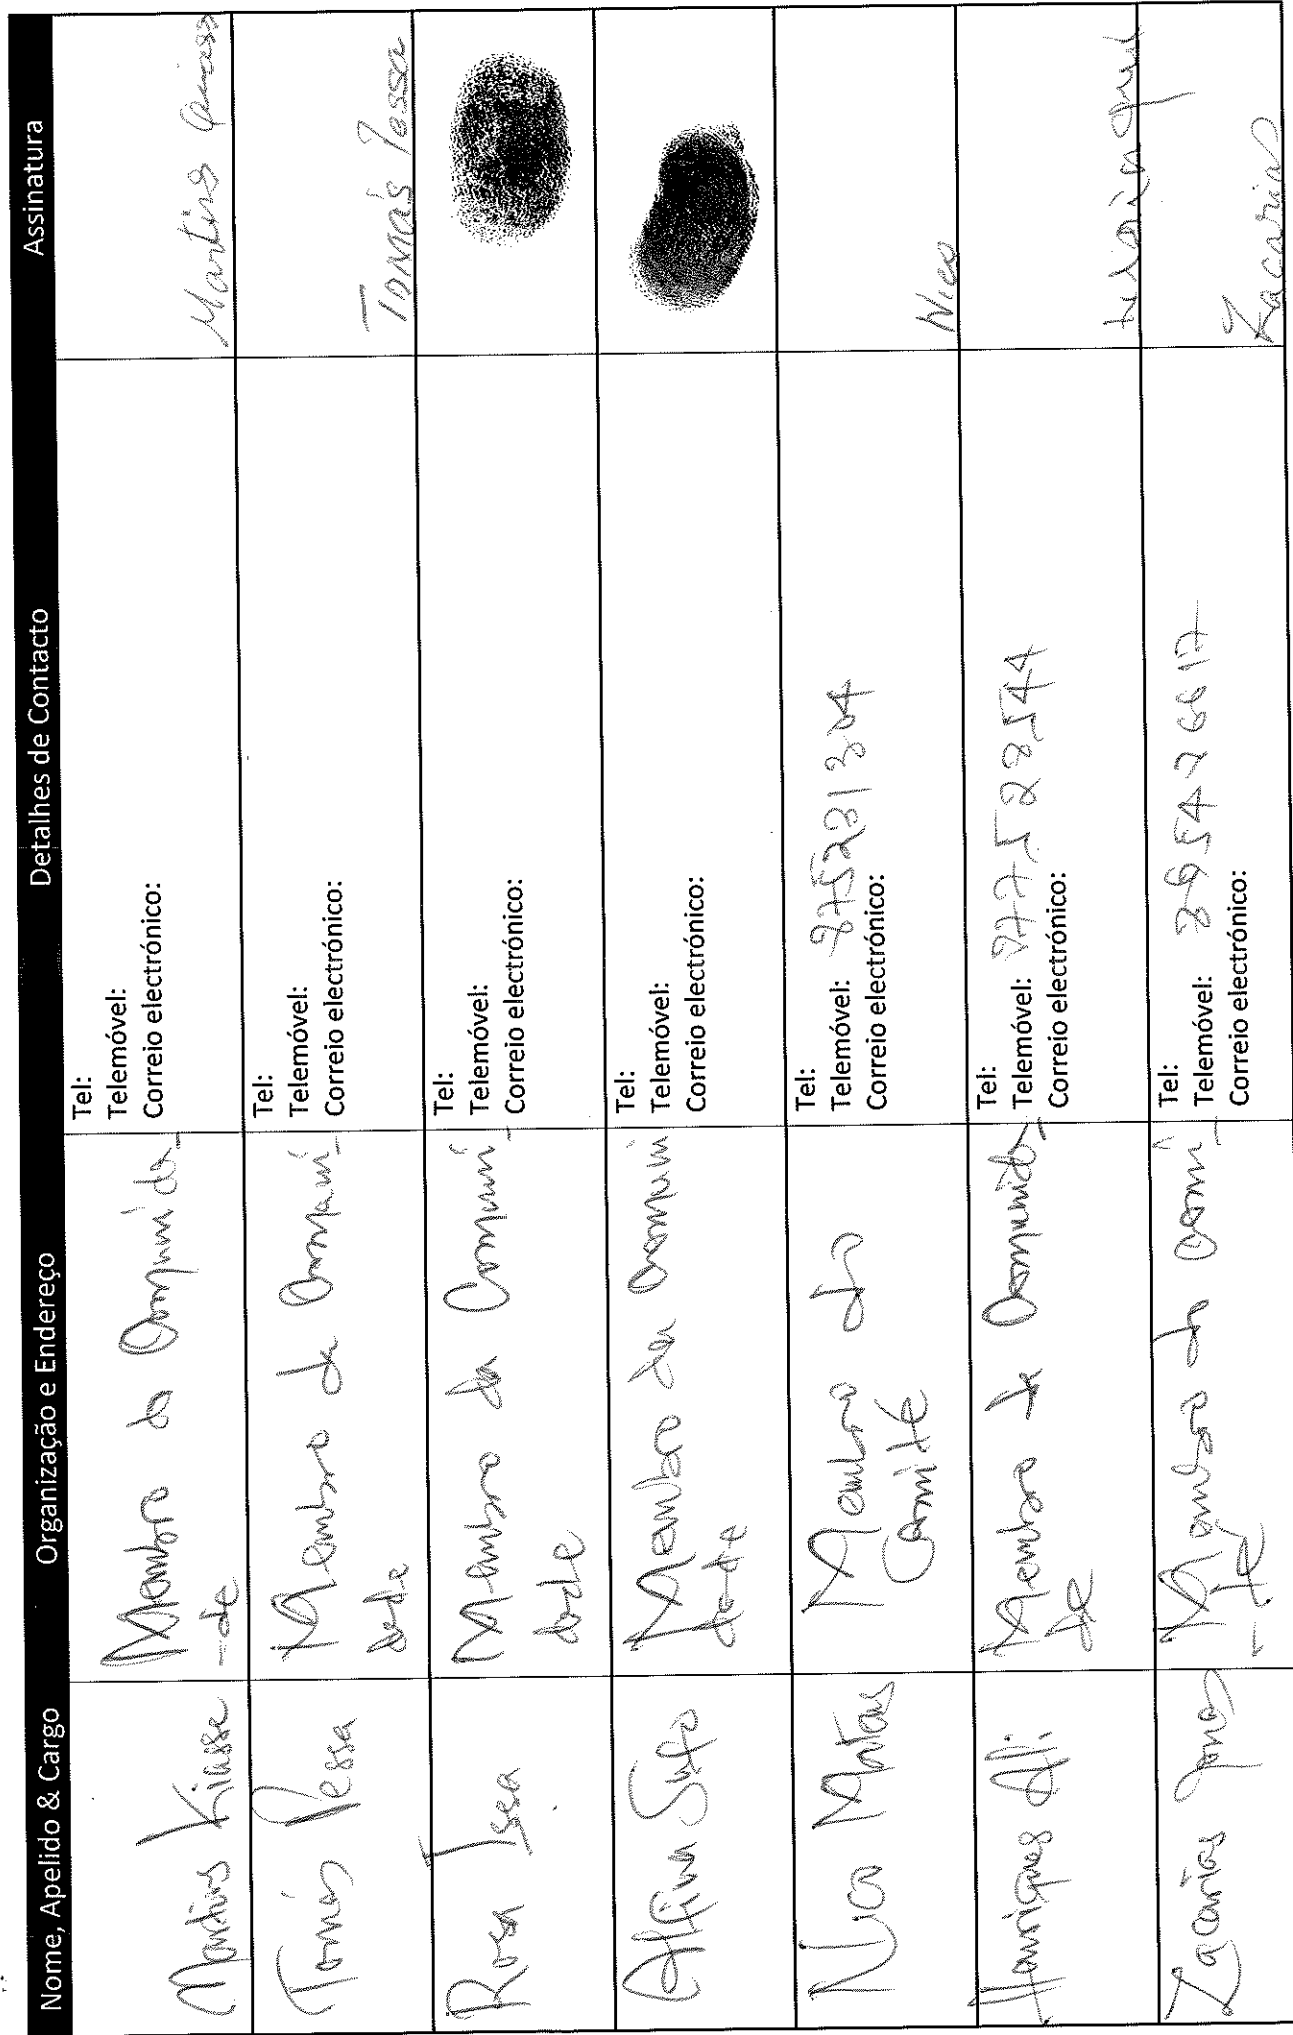 Nome, Apelido & Cargo Organização e Endereço Detalhes de Contacto Assinatura
Martins Kiasse
Membro da Comunida
-de
Tel:
Telemóvel:
Correio electrónico:
Martins
Tomás Pessa
Membro da Comuni_
dade
Tel:
Telemóvel:
Correio electrónico:
Tomás Pessa
Rosa Issa
Membro da Comuni_
dade
Tel:
Telemóvel:
Correio electrónico:
Membro da Comuni
dade
Tel:
Telemóvel:
Correio electrónico:
Nico Matias
Membro do
Comité
Tel:
Telemóvel: 875231304
Correio electrónico:
Nico
Henriques Ali
Membro da Comunida_
de
Tel:
Telemóvel:
Correio electrónico:
Zacarias
Membro do Comi_
-té
Tel:
Telemóvel:
Correio electrónico:
Zacarias